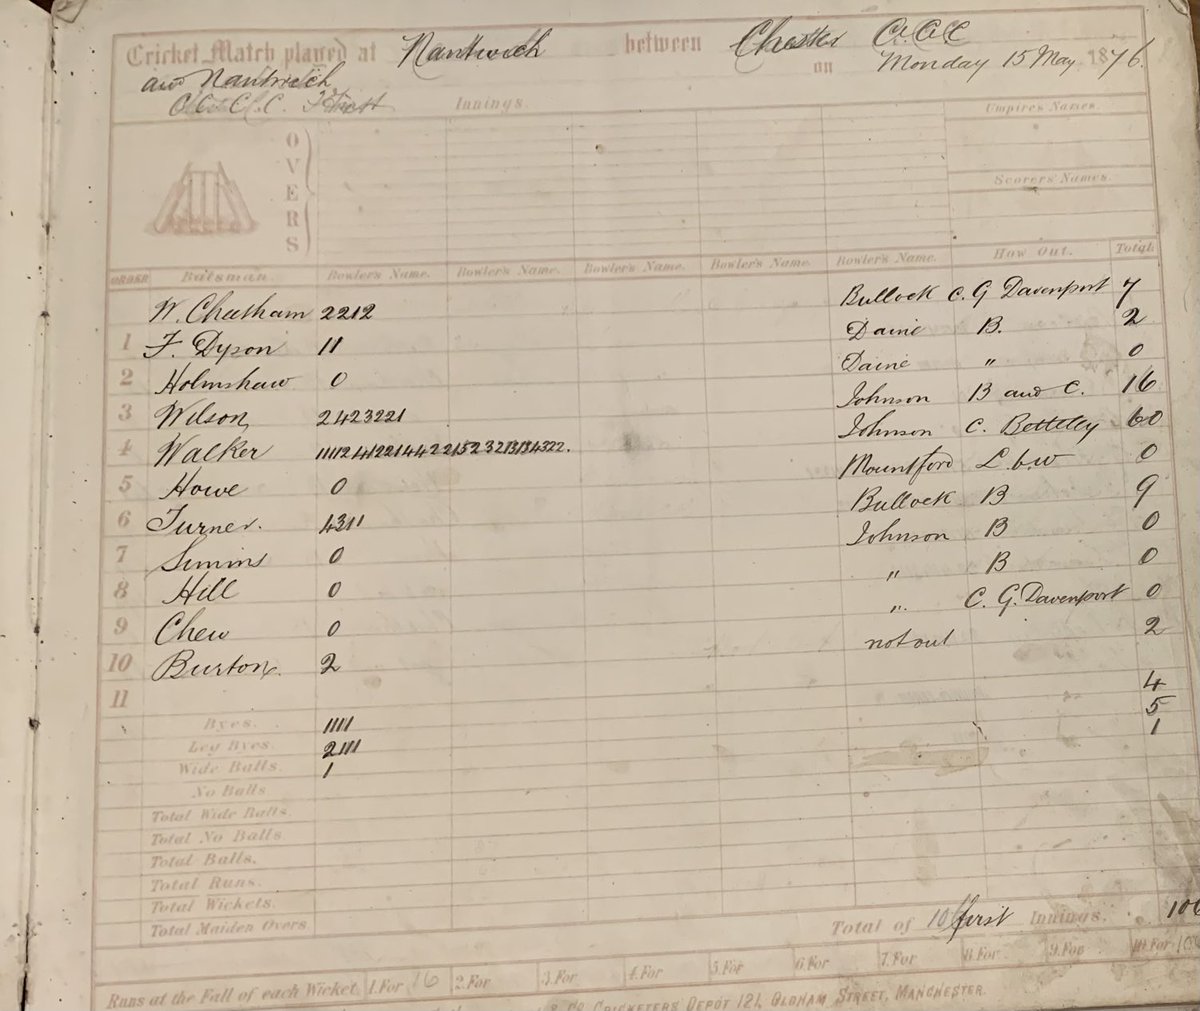 Cricket Match played at Nantwich between Chester C.C.C
and Nantwich on Monday 15 May 1876.
C.C.C.C. First Innings.
Umpires Names.
OVERS
Scorers Names.
ORDER Batsman. Bowler's Name. Bowler's Name. Bowler's Name. Bowler's Name. Bowler's Name. How Out. Total.
W. Cheetham 2212 Bullock C. G Davenport 7
1 F. Dyson 11 Daine B. 2
2 Holmshaw 0 Daine " 0
3 Wilson 2423221 Johnson B and C. 16
4 Walker Johnson C. Betteley 60
5 Howe 0 Mountford L.b.w 0
6 Turner. 4311 Bullock B 9
7 Simms 0 Johnson B 0
8 Hill 0 " B 0
9 Chew 0 " C. G. Davenport 0
10 Burton. 2 not out 2
11
Byes. 1111 4
Leg Byes 2111 5
Wide Balls. 1 1
No Balls
Total Wide Balls.
Total No Balls
Total Balls.
Total Runs.
Total Wickets.
Total Maiden Overs
Total of first Innings. 106
Runs at the Fall of each Wicket. 1.For 16 2.For 3.For 4.For 5.For 6.For 7.For 8.For 9.For 10.For
Co CRICKETERS DEPOT 121, OLDHAM STREET, MANCHESTER.